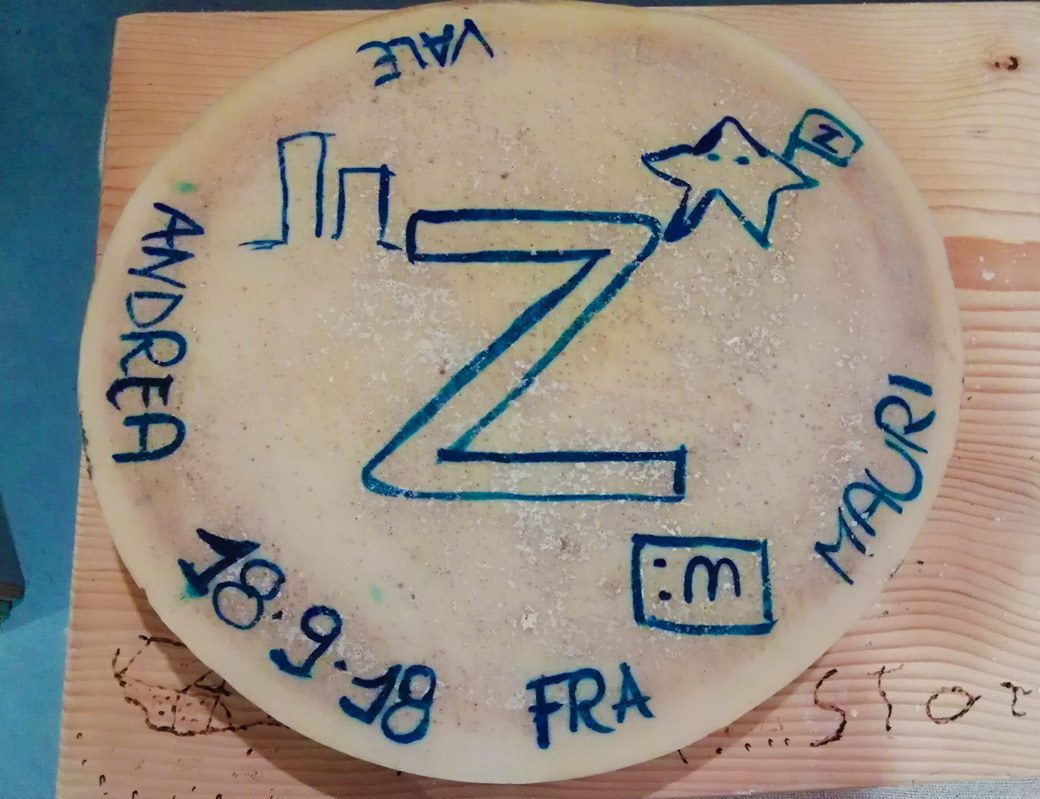 VALE
Z
ANDREA
Z
MAURI
:m
18.9.18
FRA
....STOr